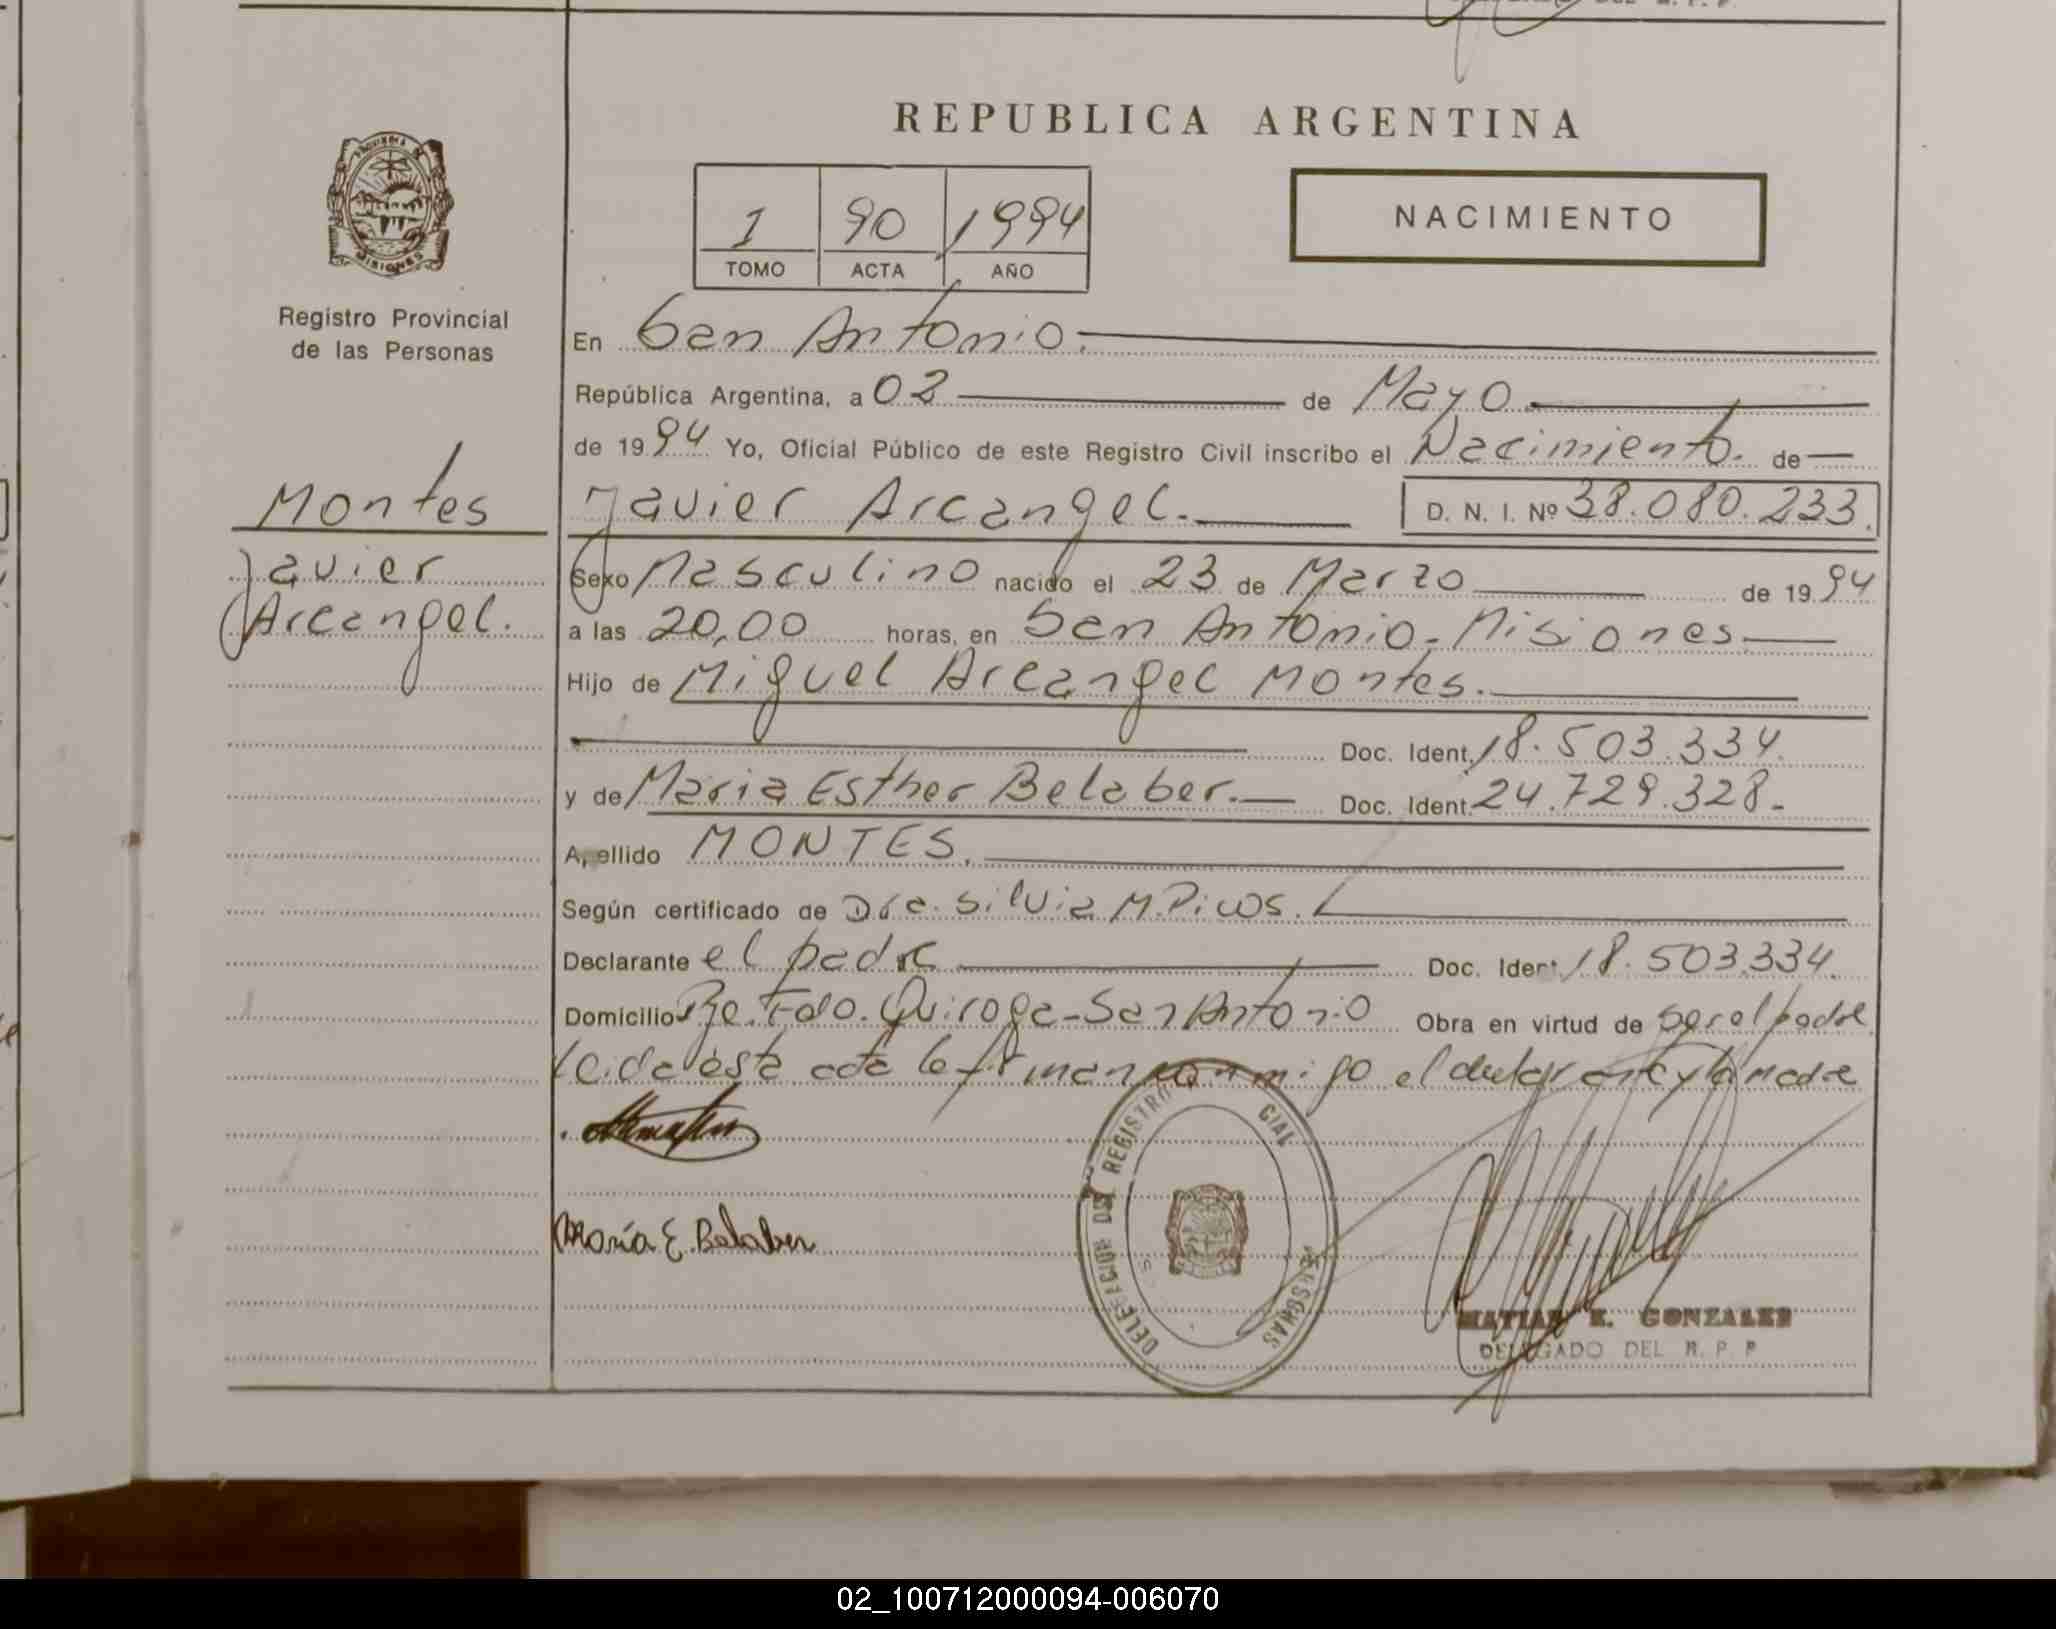 REPUBLICA ARGENTINA
1 90 1994
TOMO ACTA AÑO
NACIMIENTO
Registro Provincial
de las Personas
Montes
Javier
Arcangel.
En San Antonio.
República Argentina, a 02 de Mayo
de 1994 Yo, Oficial Público de este Registro Civil inscribo el Nacimiento. de
Javier Arcangel. D. N. I. Nº 38.080.233.
Sexo Masculino nacido el 23 de Marzo de 1994
a las 20,00 horas, en San Antonio - Misiones.
Hijo de Miguel Arcangel Montes.
Doc. Ident. 18.503.334.
y de Maria Esther Belaber. Doc. Ident. 24.729.328.
Apellido MONTES.
Según certificado de Dra. Silvia M. Picos.
Declarante el padre Doc. Ident. 18.503.334.
Domicilio Fdo. Quiroga - San Antonio Obra en virtud de ser el padre
Leida esta acta la firman conmigo el declarante y la madre
María E. Belaber
REGISTRO
MATIAS GONZALEZ
DELEGADO DEL R. P. P
02_100712000094-006070